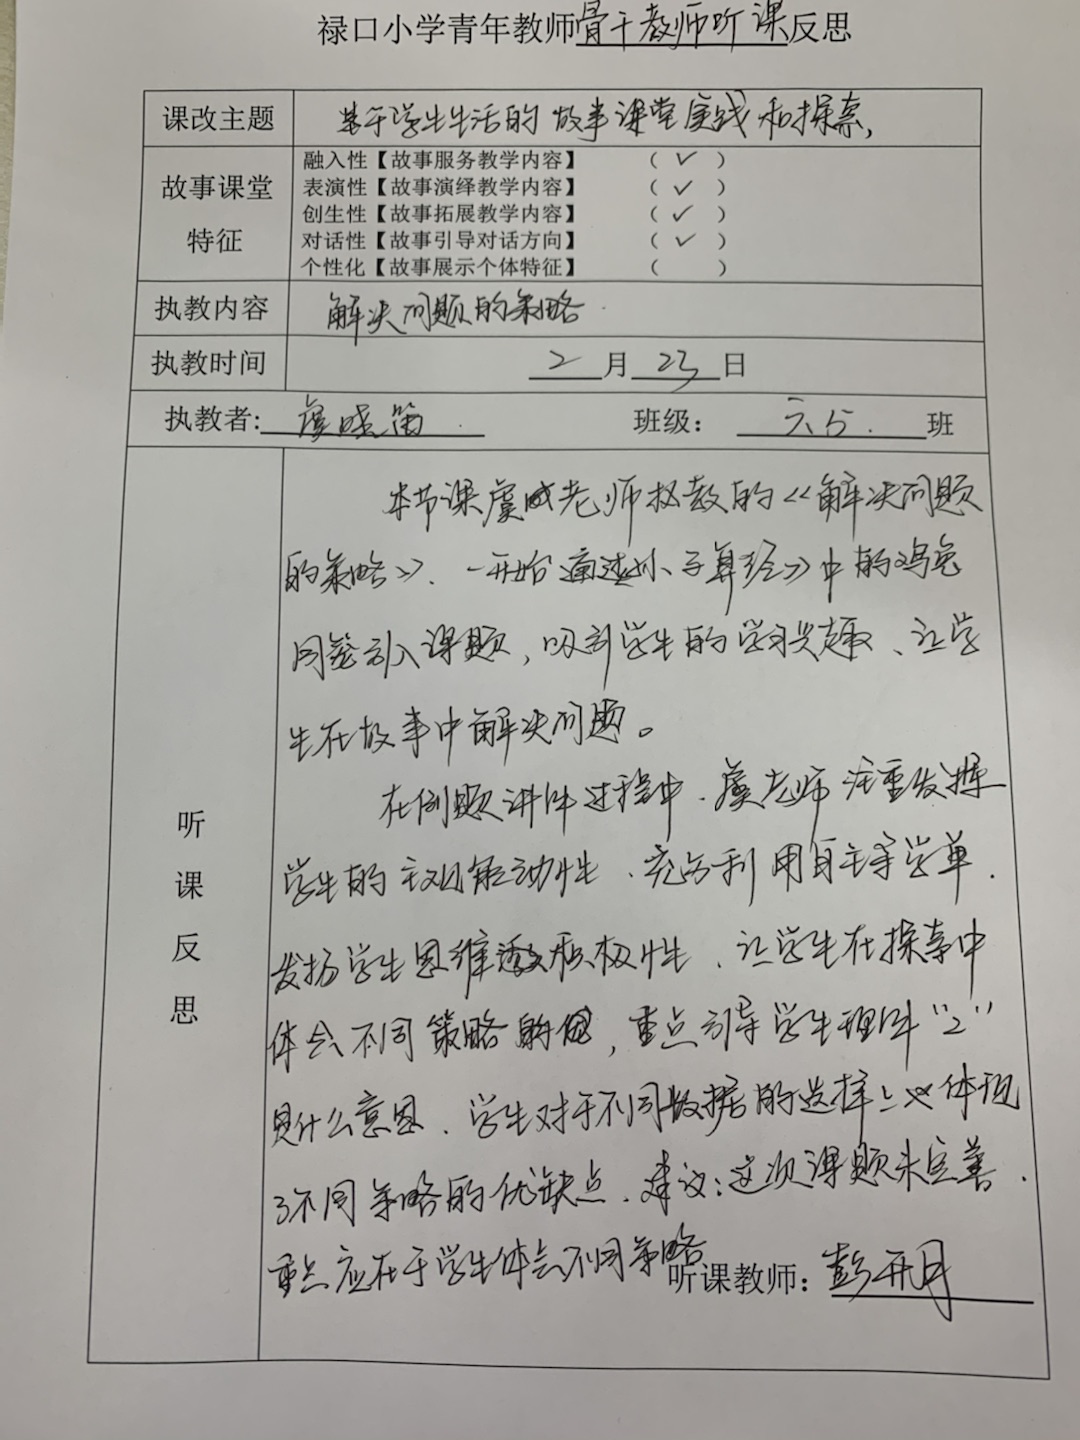 禄口小学青年教师骨干教师听课反思
课改主题 基于学生生活的故事课堂实践和探索,
故事课堂特征
融入性【故事服务教学内容】 (✓)
表演性【故事演绎教学内容】 (✓)
创生性【故事拓展教学内容】 (✓)
对话性【故事引导对话方向】 (✓)
个性化【故事展示个体特征】 ( )
执教内容 解决问题的策略
执教时间 2月23日
执教者: 虞晓笛 班级: 六5. 班
听课反思
本节课虞老师执教的《解决问题
的策略》、一开始通过《孙子算经》中的鸡兔
同笼引入课题,吸引学生的学习兴趣、让学
生在故事中解决问题。
在例题讲解过程中、虞老师注重发挥
学生的主观能动性、充分利用自主导学单、
发扬学生思维积极性、让学生在探索中
体会不同策略的,重点引导学生理解“2”
是什么意思、学生对于不同数据的选择上体现
了不同策略的优缺点、建议:这次课题未完善、
重点应在于学生体会不同策略
听课教师: 彭开月